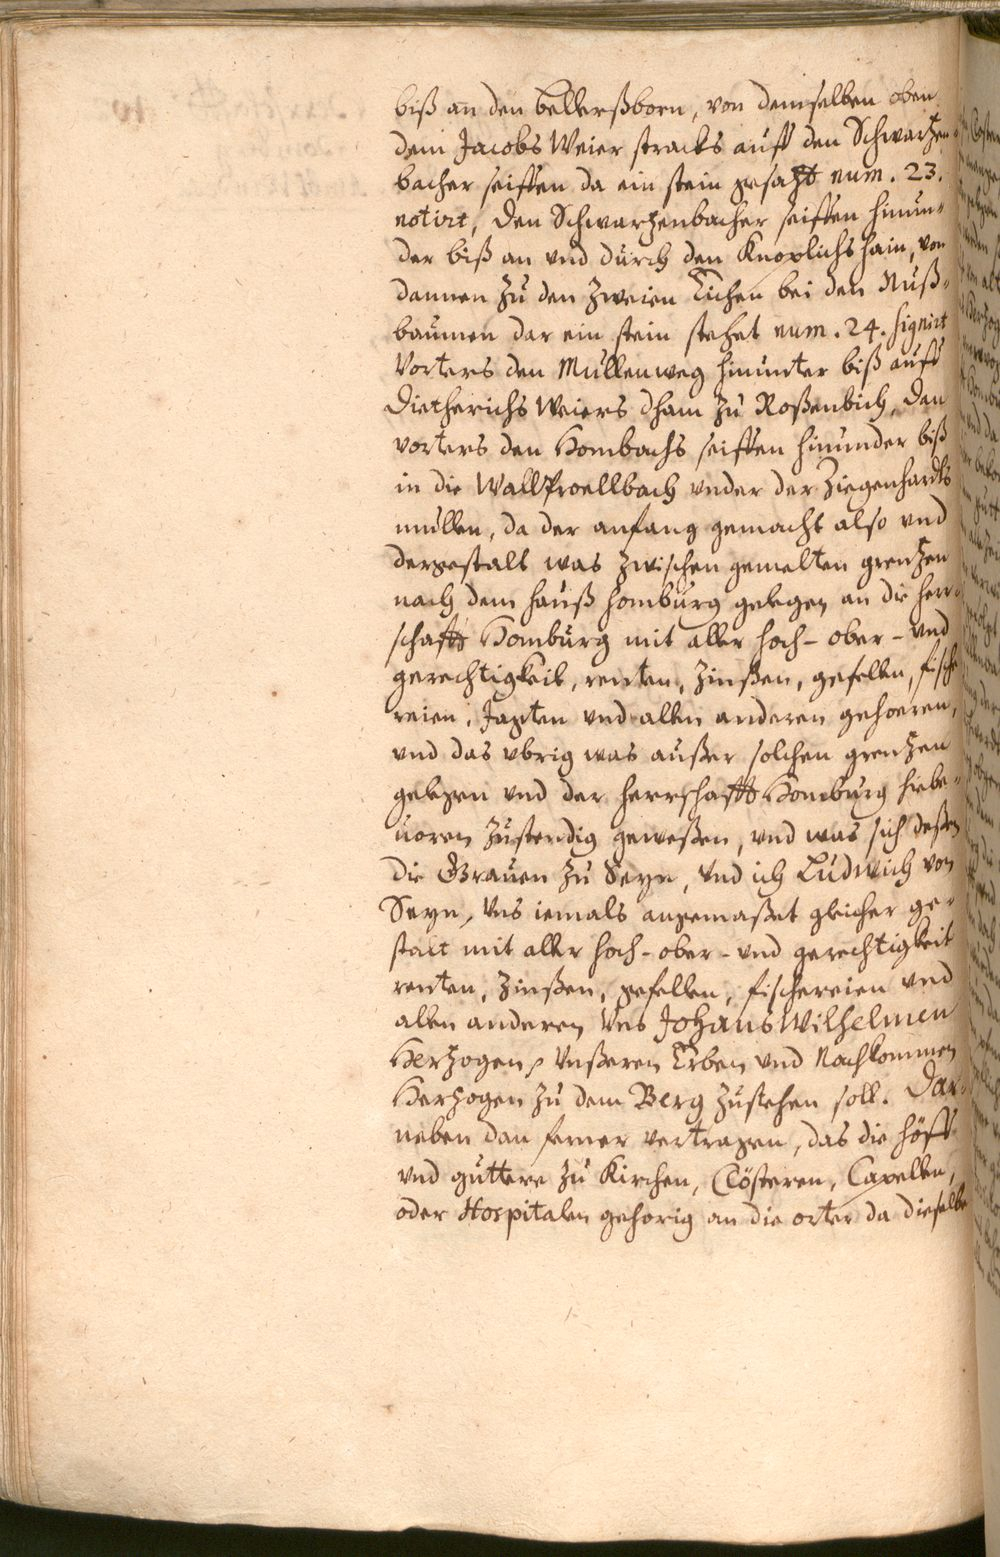 biß an den bellerßborn, von demselben oben
dem Jacobs Weier stracks auff den Schwartzen-
bacher seiffen da ein stein gesatzt num. 23.
notirt, den Schwartzenbacher seiffen hinun-
der biß an vnd durch den Knoplichs hain, von
dannen zu den zweien Eichen bei den Nuß-
baumen dar ein stein stehet num. 24. signirt
Vorters den Mullenweg hinunter biß auff
Dietherichs Weiers dham zu Roßenbich, dan
vorters den Hombachs seiffen hinunder biß
in die Wallproellbach vnder der Ziegenhardts
mullen, da der anfang gemacht also vnd
dergestalt was zwischen gemelten grentzen
nach dem hauß homburg gelegen an die herr-
schafft Homburg mit aller hoch- ober- vnd
gerechtigkeit, renten, zinßen, gefellen, fische
reien, Jagten vnd allen anderen gehoeren,
vnd das vbrig was außer solchen grentzen
gelegen vnd der herrschafft Homburg hiebe-
uoren zustendig geweßen, vnd was sich deßen
die Grauen zu Seyn, vnd ich Ludwich von
Seyn, Vns iemals angemaßet gleicher ge-
stalt mit aller hoch- ober- vnd gerechtigkeit
renten, zinßen, gefellen, fischereien vnd
allen anderen Vns Johans Wilhelmen
Hertzogen, Vnßeren Erben vnd Nachkommen
Hertzogen zu dem Berg zustehen soll. Dar-
neben dan ferner vertragen, das die höff
vnd guttere zu Kirchen, Clösteren, Capellen,
oder Hospitalen gehorig an die orter da dieselbe